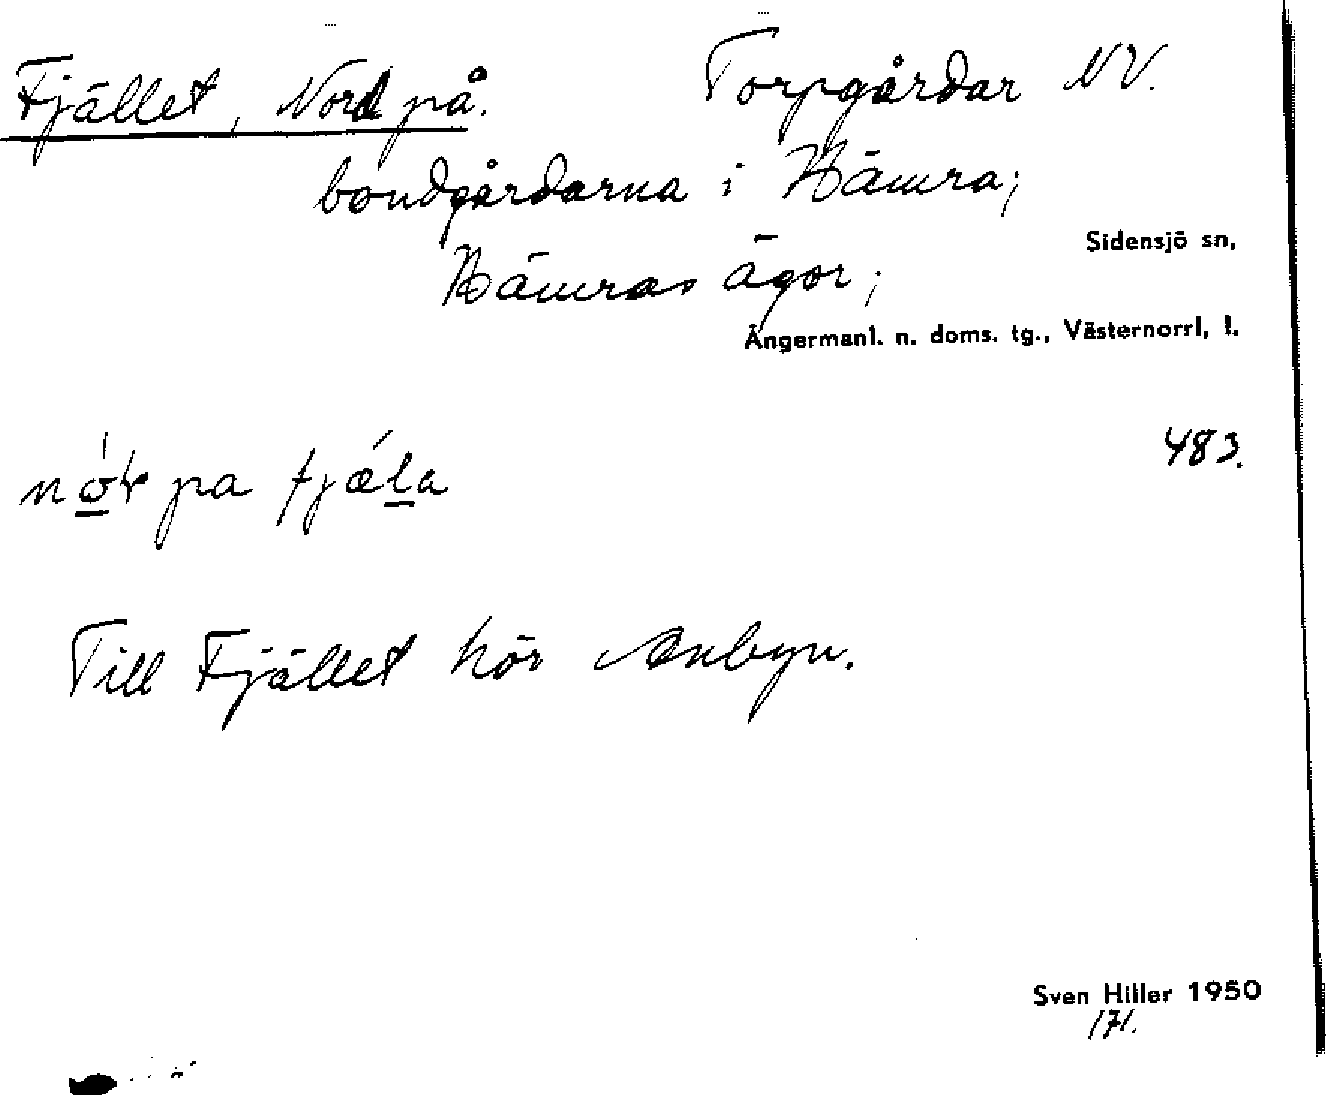 Fjället, Nord på. Torpgårdar NV.
bondgårdarna i Hämra;
Hämras ägor;
Sidensjö sn,
Ångermanl. n. doms. tg., Västernorrl, l.
483.
pa fjæla
Till Fjället hör Anbyn.
Sven Hiller 1950
171.